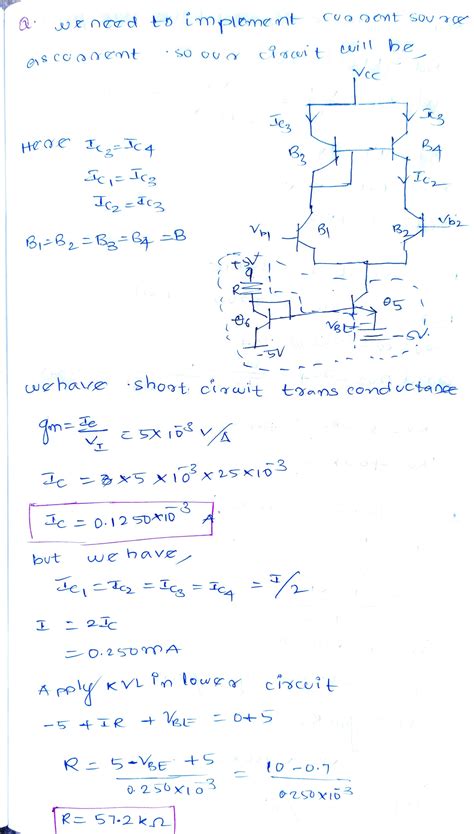 Q. we need to implement current source
as current . so our circuit will be,
Vcc
IC3
IC3
Here IC3 = IC4
B3
B4
IC1 = IC3
IC2
IC2 = IC3
B1 = B2 = B3 = B4 = B
Vb1
B1
B2
Vb2
+5V
R
Q6
Q5
VBE
-5V
-5V
we have short circuit trans conductance
gm = IC/VT = 5×10^-3 V/A
IC = 5×10^-3 × 25×10^-3
IC = 0.1250×10^-3 A
but we have,
IC1 = IC2 = IC3 = IC4 = I/2
I = 2IC
= 0.250mA
Apply KVL in lower circuit
-5 + IR + VBE = 0+5
R = 5-VBE+5 / 0.250×10^-3 = 10-0.7 / 0.250×10^-3
R = 57.2kΩ